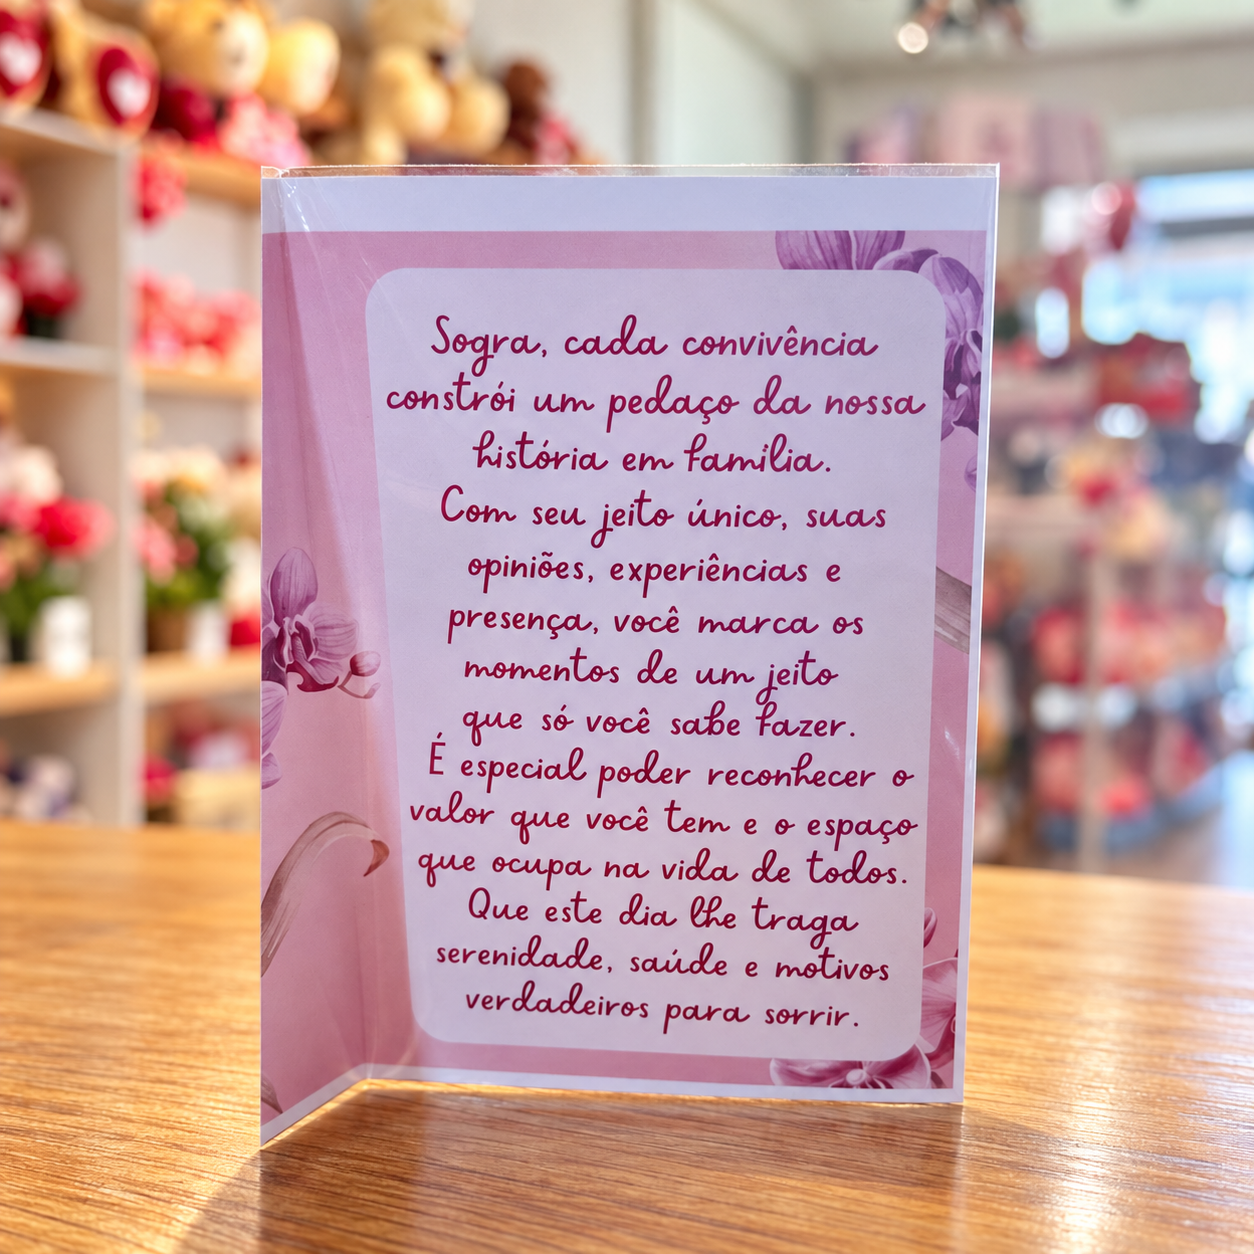 Sogra, cada convivência
constrói um pedaço da nossa
história em família.
Com seu jeito único, suas
opiniões, experiências e
presença, você marca os
momentos de um jeito
que só você sabe fazer.
É especial poder reconhecer o
valor que você tem e o espaço
que ocupa na vida de todos.
Que este dia lhe traga
serenidade, saúde e motivos
verdadeiros para sorrir.